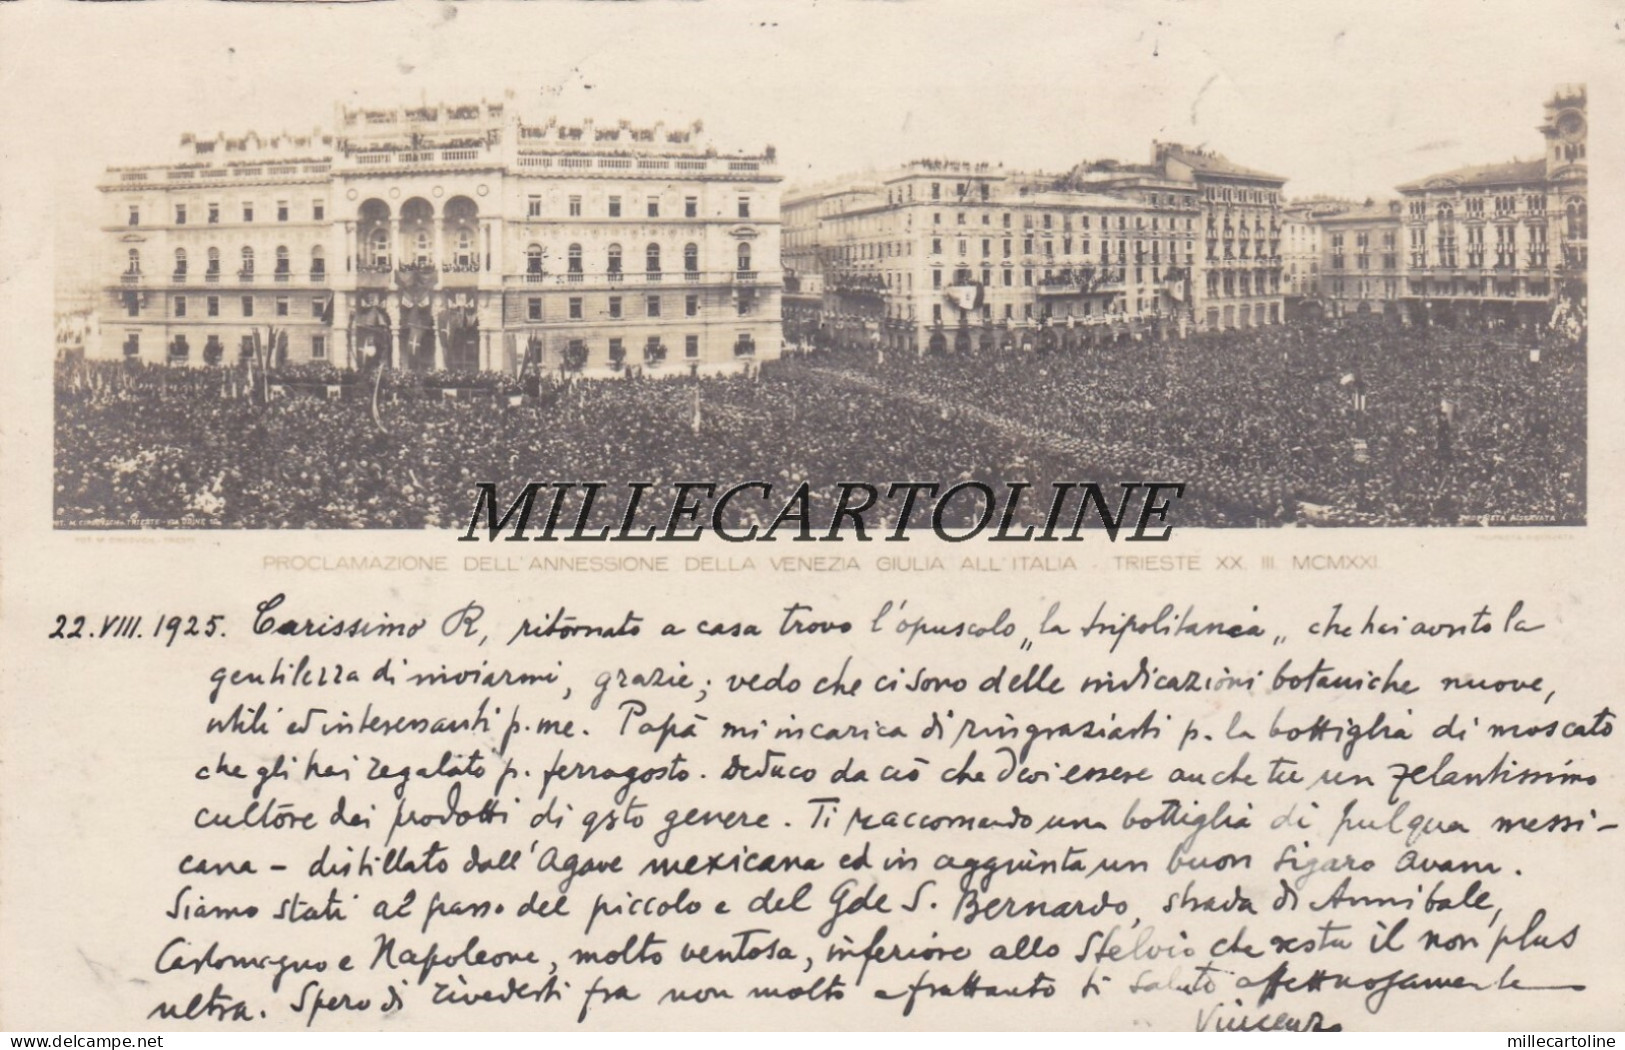 MILLECARTOLINE
PROCLAMAZIONE DELL'ANNESSIONE DELLA VENEZIA GIULIA ALL'ITALIA - TRIESTE XX III MCMXXI
22.VIII.1925. Carissimo R, ritornato a casa trovo l'opuscolo „la tripolitania„ che hai avuto la
gentilezza di inviarmi, grazie; vedo che ci sono delle indicazioni botaniche nuove,
utili ed interessanti p. me. Papà mi incarica di ringraziarti p. la bottiglia di moscato
che gli hai regalato p. ferragosto. Deduco da ciò che devi essere anche tu un zelantissimo
cultore dei prodotti di qsto genere. Ti raccomando una bottiglia di pulqua messi-
cana - distillato dall'Agave mexicana ed in aggiunta un buon sigaro avana.
Siamo stati al passo del piccolo e del Gde S. Bernardo, strada di Annibale,
Carlomagno e Napoleone, molto ventosa, inferiore allo Stelvio che resta il non plus
ultra. Spero di rivederti fra non molto e frattanto ti saluto affettuosamente
Vincenzo
delcampe.net
millecartoline